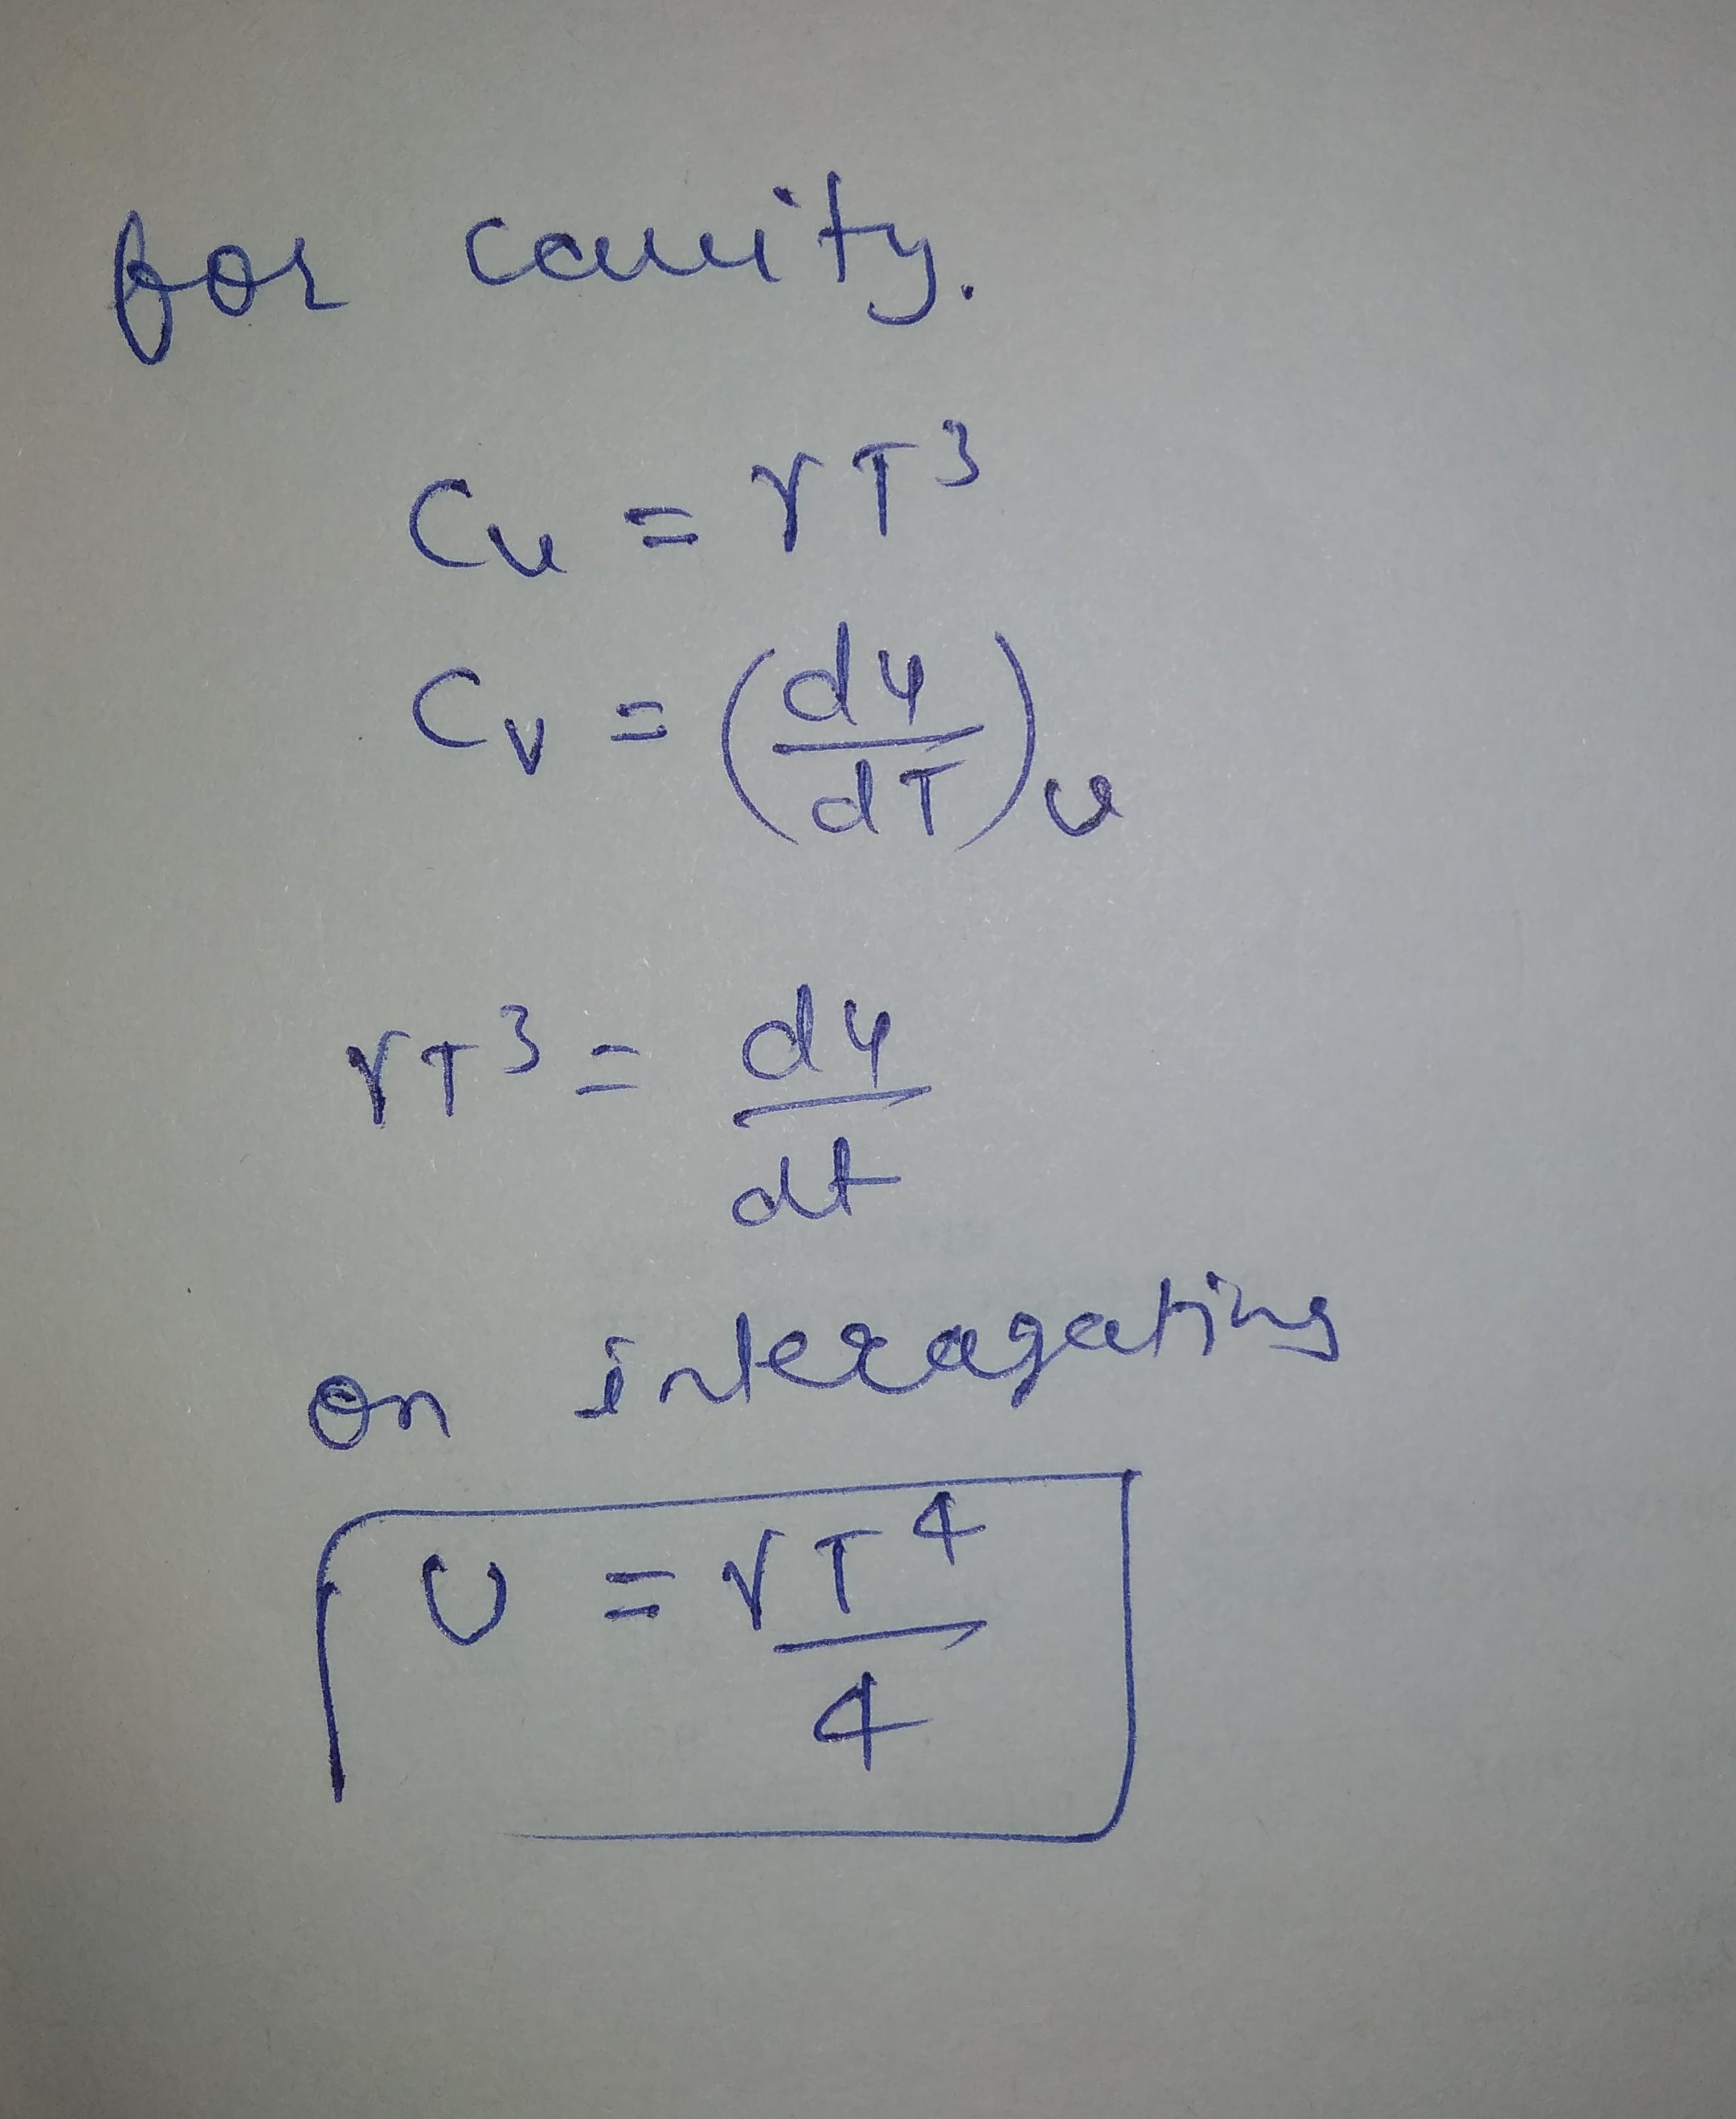 for cavity.
Cv = γT³
Cv = (du/dT)v
γT³ = du/dt
on interagating
U = γT⁴/4